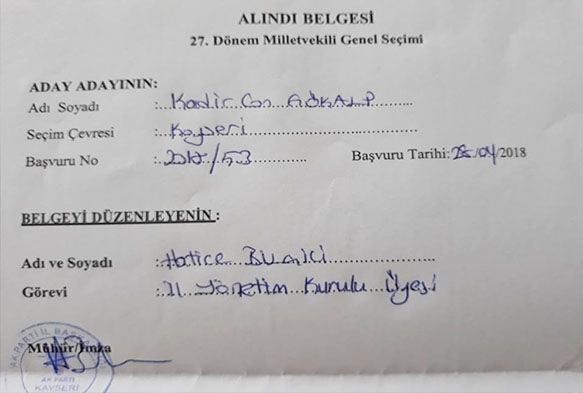 ALINDI BELGESİ
27. Dönem Milletvekili Genel Seçimi
ADAY ADAYININ:
Adı Soyadı :.. Kadir Can GÖKALP ..........
Seçim Çevresi :.. Kayseri ..............................
Başvuru No :.. 2018/53 ............. Başvuru Tarihi: 25/04/2018
BELGEYİ DÜZENLEYENİN :
Adı ve Soyadı :.. Hatice BİLGİCİ ....................
Görevi :.. İl Yönetim Kurulu Üyesi
Mühür/İmza
AK PARTİ İL BAŞ
AK PARTİ
KAYSERİ